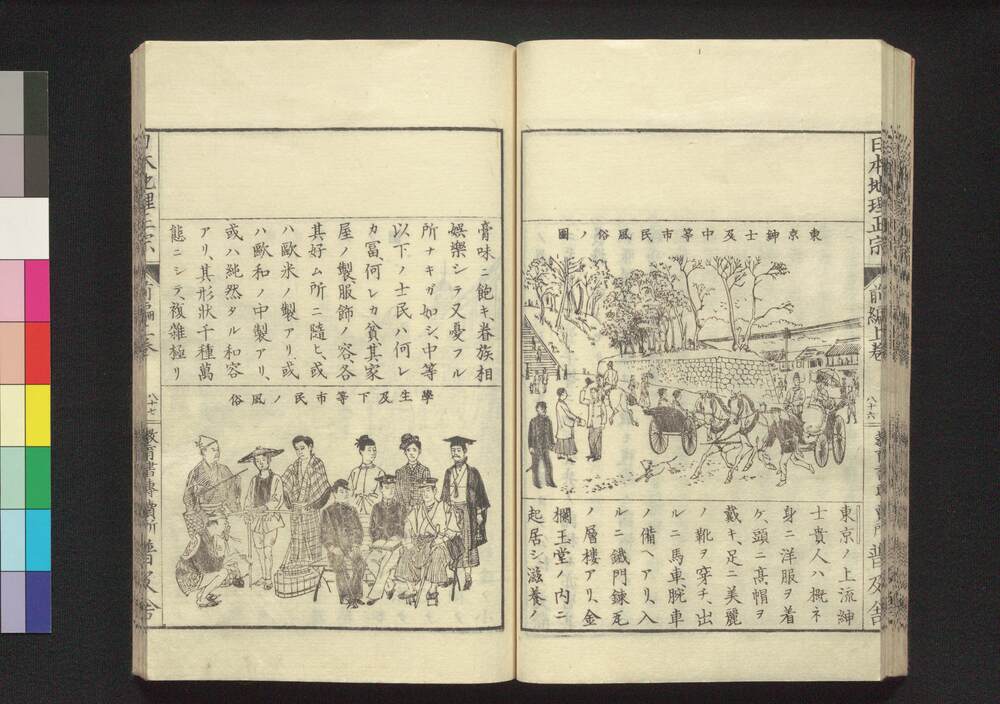 日本地理正宗
前編上巻
八十六
普及舎
東京紳士及中等市民風俗ノ圖
東京ノ上流紳
士貴人ハ概子
身ニ洋服ヲ着
ケ、頭ニ高帽ヲ
戴キ、足ニ美麗
ノ靴ヲ穿チ、出
ルニ馬車腕車
ノ備ヘアリ、入
ルニ鐵門錬瓦
ノ層樓アリ、金
欄玉堂ノ内ニ
起居シ、滋養ノ
膏味ニ飽キ、眷族相
娯樂シテ又憂フル
所ナキガ如シ、中等
以下ノ士民ハ何レ
カ冨、何レカ貧、其家
屋ノ製、服飾ノ容、各
其好ム所ニ隨ヒ、或
ハ歐米ノ製アリ、或
ハ歐和ノ中製アリ、
或ハ純然タル和容
アリ、其形狀千種萬
態ニシテ、複雑極リ
學生及下等市民ノ風俗
日本地理正宗
前編上巻
八十七
教育書專賣所
普及舎